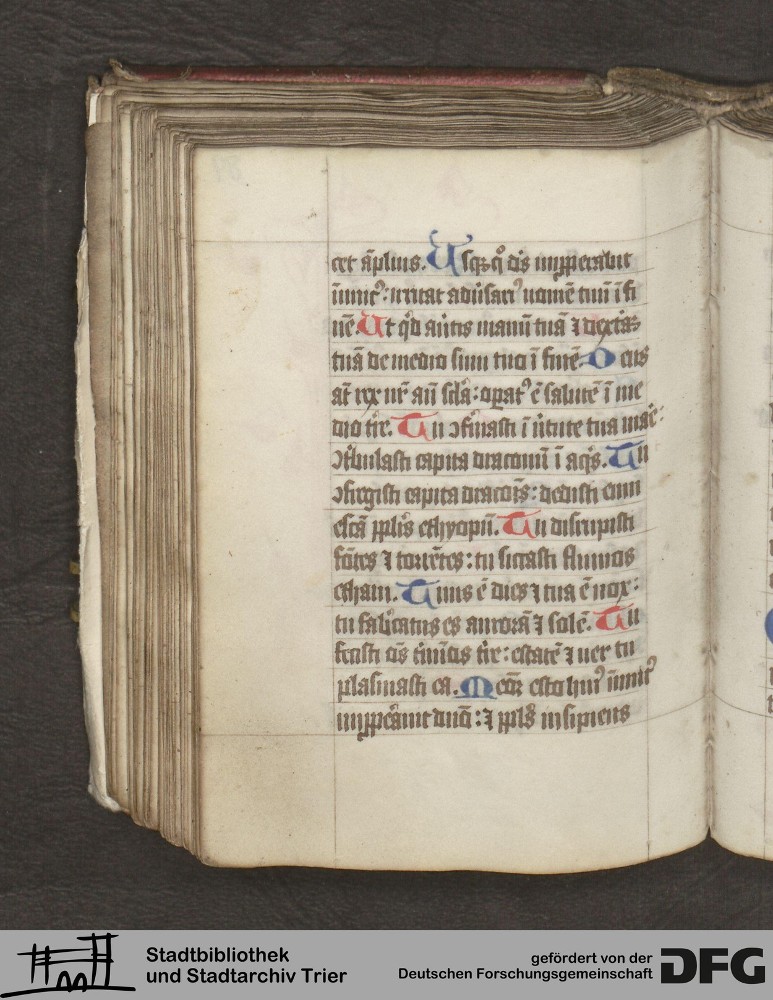 cet āplius. Usq;q̊ ds īpperabit
inimic⁹: irritat adūsari⁹ nomē tuū ī fi
nē. Ut qͥd aūtis manū tuā ⁊ dextā
tuā de medio sinu tuo ī finē. Deus
aūt rex nr̄ an̄ scła: opat⁹ ē salutē ī me
dio tr̄e. Tu ꝯfirmasti ī ūtute tua mare:
ꝯtͥbulasti capita draconū ī aqͥs. Tu
ꝯfregisti capita dracoīs: dedisti eum
escā pplis ethyopū. Tu disrupisti
fōtes ⁊ torrētes: tu siccasti fluuios
etham. Tuus ē dies ⁊ tua ē nox:
tu fabͥcatus es aurorā ⁊ solē. Tu
fecisti oēs tͥminos tr̄e: estatē ⁊ uer tu
plasmasti ea. Memor esto hui⁹ inimic⁹
īpperauit dn̄o: ⁊ ppls insipiens
Stadtbibliothek
und Stadtarchiv Trier
gefördert von der
Deutschen Forschungsgemeinschaft
DFG